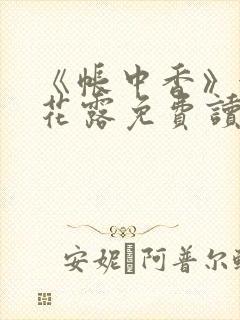 《帳中香》
花露免費讀
安妮 阿普尔